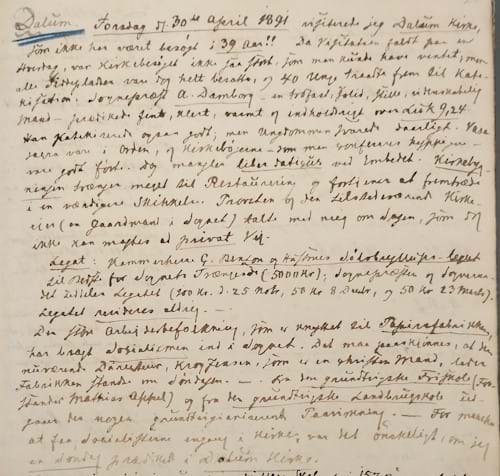 Dalum. Torsdag d. 30te April 1891 visiterede jeg Dalum Kirke,
som ikke har været besøgt i 39 Aar!! Da Visitatsen faldt paa en
Hverdag, var Kirkebesøget ikke saa stort, som man kunde have ventet, men
alle Siddepladser var dog helt besatte, og 40 Unge traadte frem til Kate-
kisation. Sognepræst A. Damborg - en trofast, solid, stille,
Mand - prædikede smukt, klart, varmt og indholdsrigt over Luk 9,24.
Han katekiserede ogsaa godt; men Ungdommen svarede daarligt. Vasa
sacra var i Orden, og Kirkebøgerne - som man
vare godt førte. Dog mangler liber daticus ved Embedet. Kirkebyg-
ningen trænger meget til Restaurering og fortjener at fremtræde
i en værdigere Skikkelse. Provsten og den tilstedeværende Kirke-
eier (en Gaardmand i Sognet) talte med mig om Sagen, som dog
ikke kan magtes ad privat Vej.
Legat: Kammerherre G. Benzon og Hustrues Sølvbryllups-Legat
til Bedste for Sognets Trængende (5000 Kr.); Sognepræsten og Sogneraa-
det uddeler Legatet (100 Kr. d. 25 Novb, 50 Kr 8 Decbr, og 50 Kr 23 Marts).
Legatet revideres aldrig. -
Den store Arbejderbefolkning, som er knyttet til Papirfabrikken,
har bragt Socialismen ind i Sognet. Det maa paaskjønnes, at den
nuværende Directeur, Krog Jensen, som er en christen Mand, lader
Fabrikken standse om Søndagen. - Fra den grundtvigske Friskole (For-
stander Mathias Appel) og fra den grundtvigske Landbrugsskole ud-
gaaer der nogen grundtvigianisk Paavirkning. - For maaske
at faa Socialisterne engang i Kirke, var det ønskeligt, om jeg
en Søndag prædiked i Dalum Kirke.